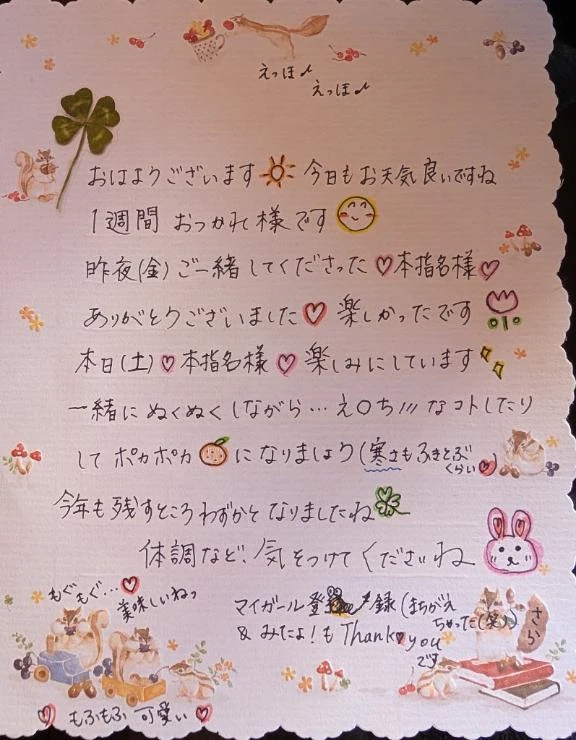 えっほ♪
えっほ♪
おはようございます☀今日もお天気良いですね
1週間 おつかれ様です
昨夜(金)ご一緒してくださった♡本指名様♡
ありがとうございました♡楽しかったです
本日(土)♡本指名様♡楽しみにしています
一緒にぬくぬくしながら…え〇ち///なコトしたり
してポカポカ🍊になりましょう(寒さもふきとぶ
くらい♡)
今年も残すところわずかとなりましたね🍀
体調など、気をつけてくださいね
もぐもぐ…♡
美味しいねっ
マイガール登録(まちがえ
ちゃった(笑))
& みたよ!も Thank♥you
です
さら
♡もふもふ 可愛い♡